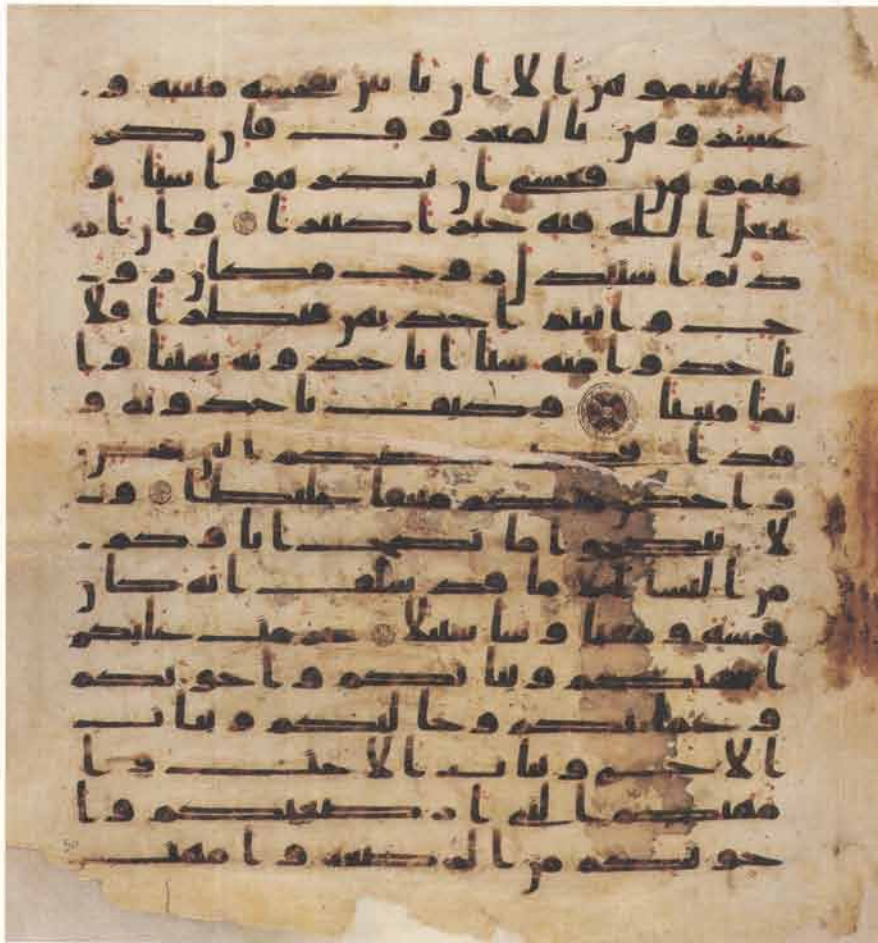 ما اتيتموهن الا ان ياتين بفحشة مبينة و
عشروهن بالمعروف فان كر
هتموهن فعسى ان تكرهوا شيا و
يجعل الله فيه خيرا كثيرا وان ار
دتم استبدال زوج مكان زو
ج واتيتم احديهن قنطرا فلا
تاخذوا منه شيا اتاخذونه بهتنا وا
ثما مبينا وكيف تاخذونه و
قد افضى بعضكم الى بعض
واخذن منكم ميثقا غليظا و
لا تنكحوا ما نكح اباوكم
من النسا الا ما قد سلف انه كان
فحشة ومقتا وسا سبيلا حرمت عليكم
امهتكم وبناتكم واخوتكم
وعماتكم وخالتكم وبنات
الاخ وبنات الاخت وا
مهتكم التي ارضعنكم وا
خوتكم من الرضعة وامهت
50